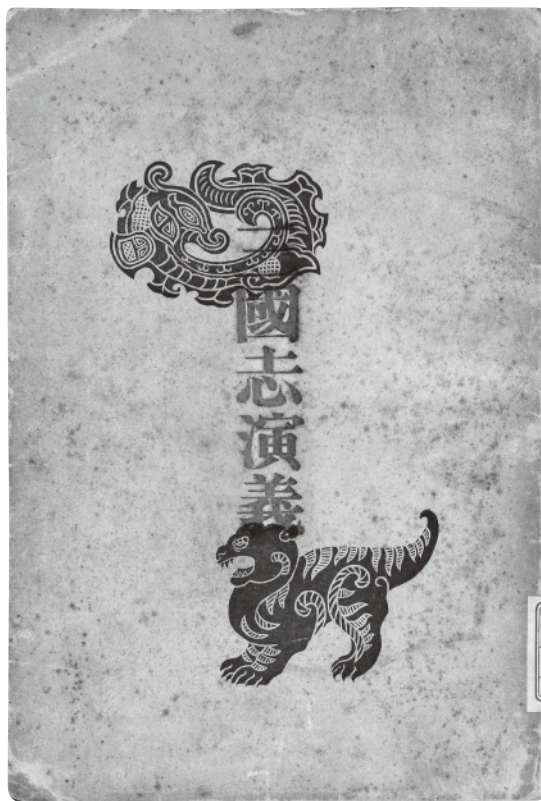 三國志演義